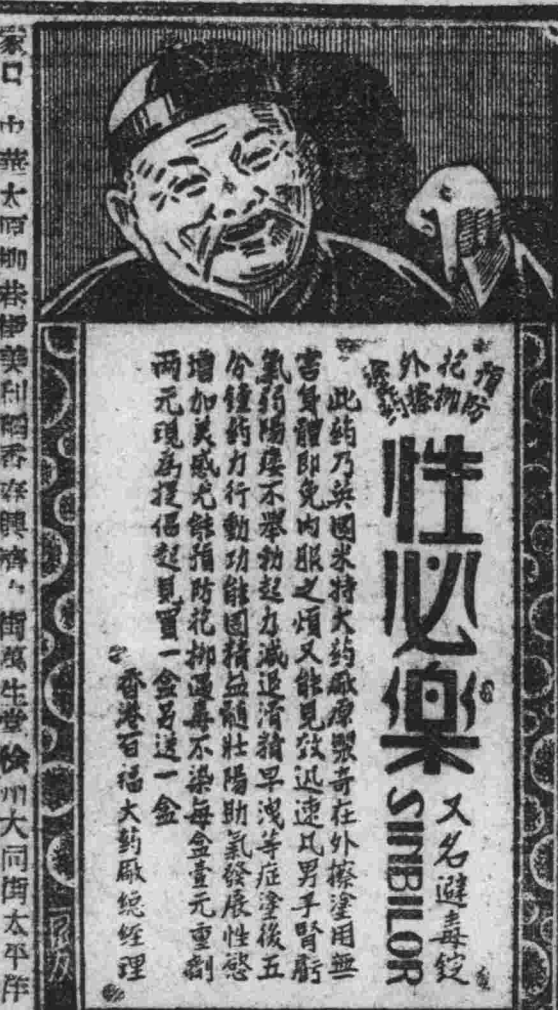 預防
花柳
外擦
藥
性必樂
SINBILOR
又名避毒錠
此药乃英國米特大药廠原製奇在外擦塗用無
害身體即免內服之煩又能見效迅速凡男子腎虧
氣弱陽痿不舉勃起力減退滑精早洩等症塗後五
分鐘药力行動功能固精益髓壯陽助氣發展性慾
增加美感尤能預防花柳遇毒不染每盒壹元重劑
两元現為提倡起見買一盒另送一盒
香港百福大药廠總經理
家口 中華太原柳巷伊美利 香 興濟 街萬生堂徐州大同街太平洋